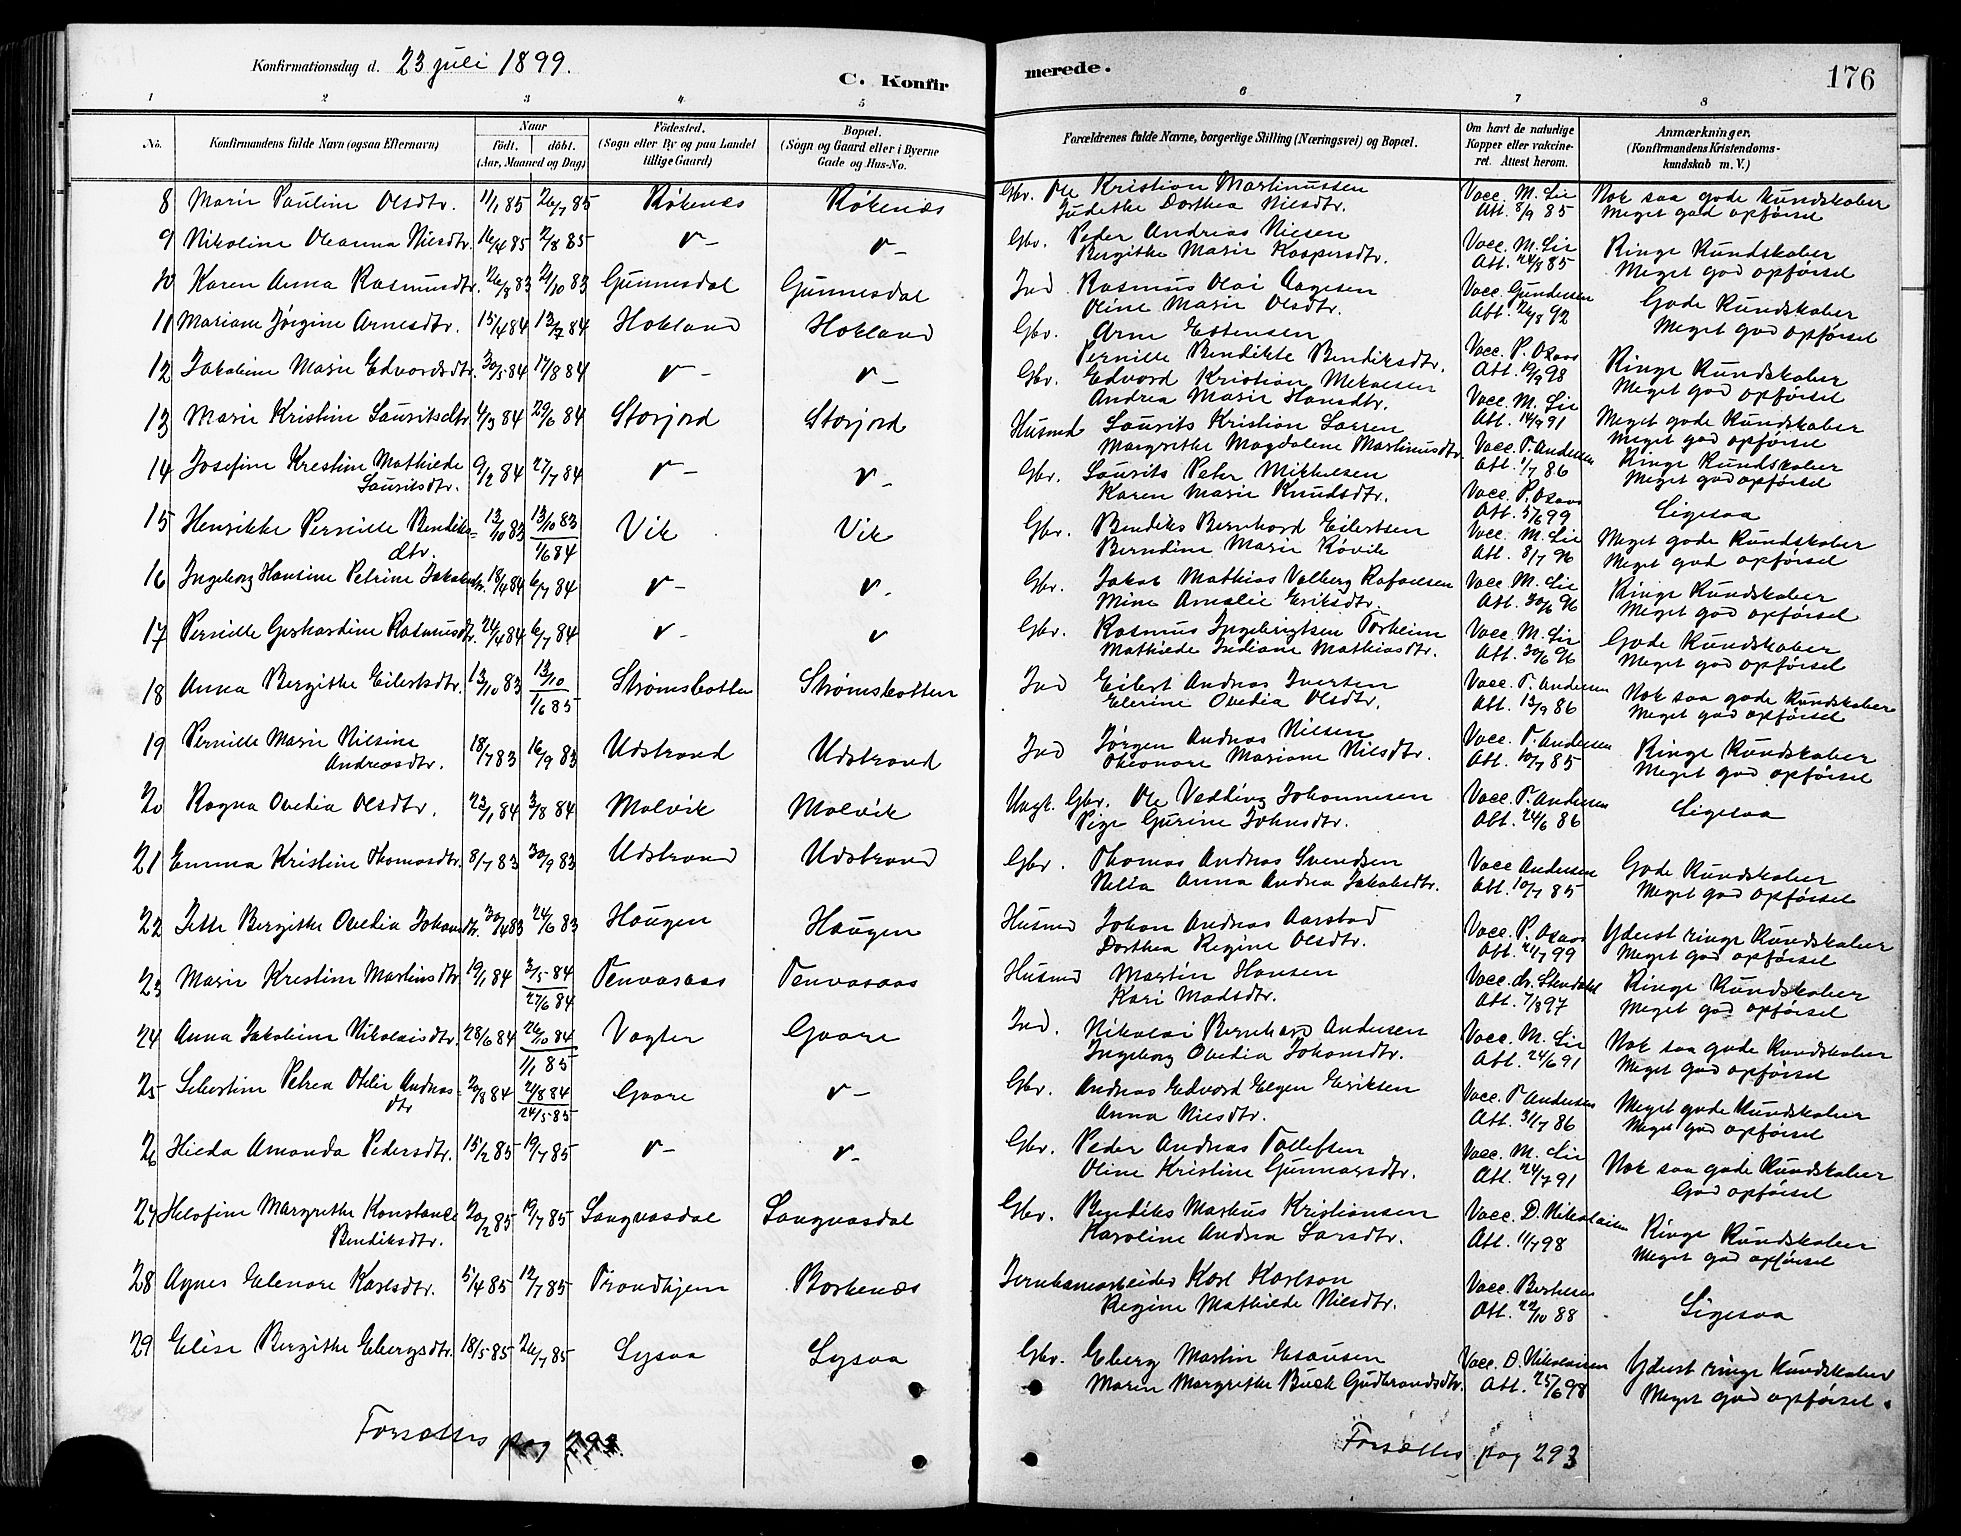 Konfirmationsdag d. 23 juli 1899.
C. Konfir
merede.
176
1 2 3 4 5 6 7 8
No.
Konfirmandens fulde Navn (ogsaa Efternavn)
Naar
födt. döbt.
(Aar, Maaned og Dag)
Födested.
(Sogn eller By og paa Landet
tillige Gaard)
Bopæl.
(Sogn og Gaard eller i Byerne
Gade og Hus-No.
Forældrenes fulde Navne, borgerlige Stilling (Næringsvei) og Bopæl.
Om havt de naturlige
Kopper eller vakcine-
ret. Attest herom.
Anmærkninger.
(Konfirmandens Kristendoms-
kundskab m. V.)
8 Marie Pauline Olsdtr. 11/1 85 26/7 85 Rökenæs Rökenæs Gbr. Ole Kristian Martinussen Vacc. M. Lie Nok saa gode Kundskaber
Judethe Dorthea Nilsdtr. Att. 8/9 85 Meget god opförsel
9 Nikoline Oleanna Nilsdtr. 16/4 85 2/8 85 v - v - Gbr. Peder Andreas Nilsen Vacc. M. Lie Ringe Kundskaber
Bergithe Marie Kaspersdtr. Att. 24/8 85 Meget god opförsel
10 Karen Anna Rasmusdtr. 26/8 83 21/10 83 Gunnesdal Gunnesdal Ind Rasmus Olai Aagesen Vacc. Gundersen Gode Kundskaber
Oline Marie Olsdtr. Att. 26/8 92 Meget god opförsel
11 Mariane Jörgine Arnesdtr. 15/4 84 13/7 84 Hokland Hokland Gbr. Arne Estensen Vacc. P. Olsaas Ringe Kundskaber
Pernille Bendikte Bendiksdtr. Att. 19/9 98 Meget god opförsel
12 Jakobine Marie Edvardsdtr. 30/5 84 17/8 84 v - v - Gbr. Edvard Kristian Mekalsen Vacc. M. Lie Meget gode Kundskaber
Andrea Marie Hansdtr. Att. 14/9 91 Meget god opförsel
13 Marie Kristine Lauritsdtr 4/3 84 29/6 84 Storjord Storjord Husmd Laurits Kristian Larsen Vacc. T. Andersen Ringe Kundskaber
Margrethe Magdalene Martinusdtr. Att. 1/7 86 Meget god opförsel
14 Josefine Krestine Mathilde 9/2 84 27/7 84 v - v - Gbr. Laurits Peter Mikkelsen Vacc. P. Olsaas Ligesaa
Lauritsdtr. Karen Marie Knudsdtr. Att. 5/6 99
15 Henrikke Pernille Bendiks= 13/10 83 13/10 83 Vik Vik Gbr. Bendiks Bernhard Eilertsen Vacc. M. Lie Meget gode Kundskaber
dtr. 1/6 84 Berndine Marie Rövik Att. 8/7 96 Meget god opförsel
16 Ingeborg Hansine Petrine Jakobsdtr. 18/4 84 6/7 84 v - v - Gbr. Jakob Mathias Valberg Rafaelsen Vacc. M. Lie Ringe Kundskaber
Mine Amalie Eriksdtr. Att. 30/6 96 Meget god opförsel
17 Pernille Gerhardine Rasmusdtr. 24/4 84 6/7 84 v - v Gbr. Rasmus Ingebrigtsen Torheim Vacc. M. Lie Gode Kundskaber
Mathilde Indiane Mathiasdtr. Att. 30/6 96 Meget god opförsel
18 Anna Bergithe Eilertsdtr. 13/10 83 13/10 Strömsbotten Strömsbotten Ind Eilert Andreas Ivertsen Vacc. T. Andersen Nok saa gode Kundskaber
1/6 85 Elerine Ovedia Olsdtr. Att. 13/9 86 Meget god opförsel
19 Pernille Marie Nilsine 18/7 83 16/9 83 Udstrand Udstrand Ind Jörgen Andreas Nilsen Vacc. T. Andersen Ringe Kundskaber
Andreasdtr. Oleonore Mariane Nilsdtr. Att. 10/7 85 Meget god opförsel
20 Ragna Ovedia Olsdtr. 23/1 84 3/8 84 Molvik Molvik Ungk. Gbr. Ole Vedding Johannesen Vacc. T. Andersen Ligesaa
Pige Gurine Johnsdtr. Att. 24/6 86
21 Emma Kristine Thomasdtr. 8/7 83 30/9 83 Udstrand Udstrand Gbr. Thomas Andreas Svendsen Vacc Andersen Gode Kundskaber
Nella Anna Andrea Jakobsdtr. Att. 10/7 85 Meget god opförsel
22 Jette Bergithe Ovedia Johansdtr. 30/4 83 24/6 83 Haugen Haugen Husmd Johan Andreas Aarstad Vacc. P. Olsaas Yderst ringe Kundskaber
Dorthea Regine Olsdtr. Att. 21/7 99 Meget god opförsel
23 Marie Krestine Martinsdtr 19/1 84 3/5 84 Tenvasaas Tenvasaas Husmd Martin Hansen Vacc. dr. Stendahl Ringe Kundskaber
27/6 84 Kari Madsdtr. Att. 7/8 97 Meget god opförsel
24 Anna Jakobine Nikolaisdtr. 28/6 84 26/10 84 Vagter Gaare Ind. Nikolai Bernhard Andersen Vacc. M. Lie Nok saa gode Kundskaber
1/1 85 Ingeborg Ovedia Johansdtr. Att. 24/6 91 Meget god opförsel
25 Silertine Petrea Otelie Andreas= 20/8 84 21/8 84 Gaare v - Gbr. Andreas Edvard Elgen Eriksen Vacc. T Andersen Meget gode Kundskaber
dtr 24/5 85 Anna Nilsdtr. Att. 31/7 86 Meget god opförsel
26 Hilda Amanda Pedersdtr. 15/2 85 19/7 85 v - v - Gbr. Peder Andreas Tollefsen Vacc. M. Lie Nok saa gode Kundskaber
Oline Kristine Gunnarsdtr. Att. 24/7 91 God opförsel
27 Helofine Margrethe Konstanse 20/2 85 19/7 85 Langvasdal Langvasdal Gbr. Bendiks Markus Kristiansen Vacc. D. Nikolaisen Ringe Kundskaber
Bendiksdtr. Karoline Andrea Larsdtr. Att. 11/7 98 Meget god opförsel
28 Agnes Elenore Karlsdtr. 5/4 85 12/7 85 Trondhjem Borkenæs Jernbanearbeider Karl Karlson Vacc. Berthesen Ligesaa
Regine Mathilde Nilsdtr. Att. 22/10 88
29 Elise Bergithe Ebergsdtr. 18/5 85 26/7 85 Lysaa Lysaa Gbr. Eberg Martin Esausen Vacc. D. Nikolaisen Yderst ringe Kundskaber
Maren Margrethe Buck Gudbrandsdtr. Att. 25/6 98 Meget god opförsel.
Forsættes pag 293
Forsættes pag 293